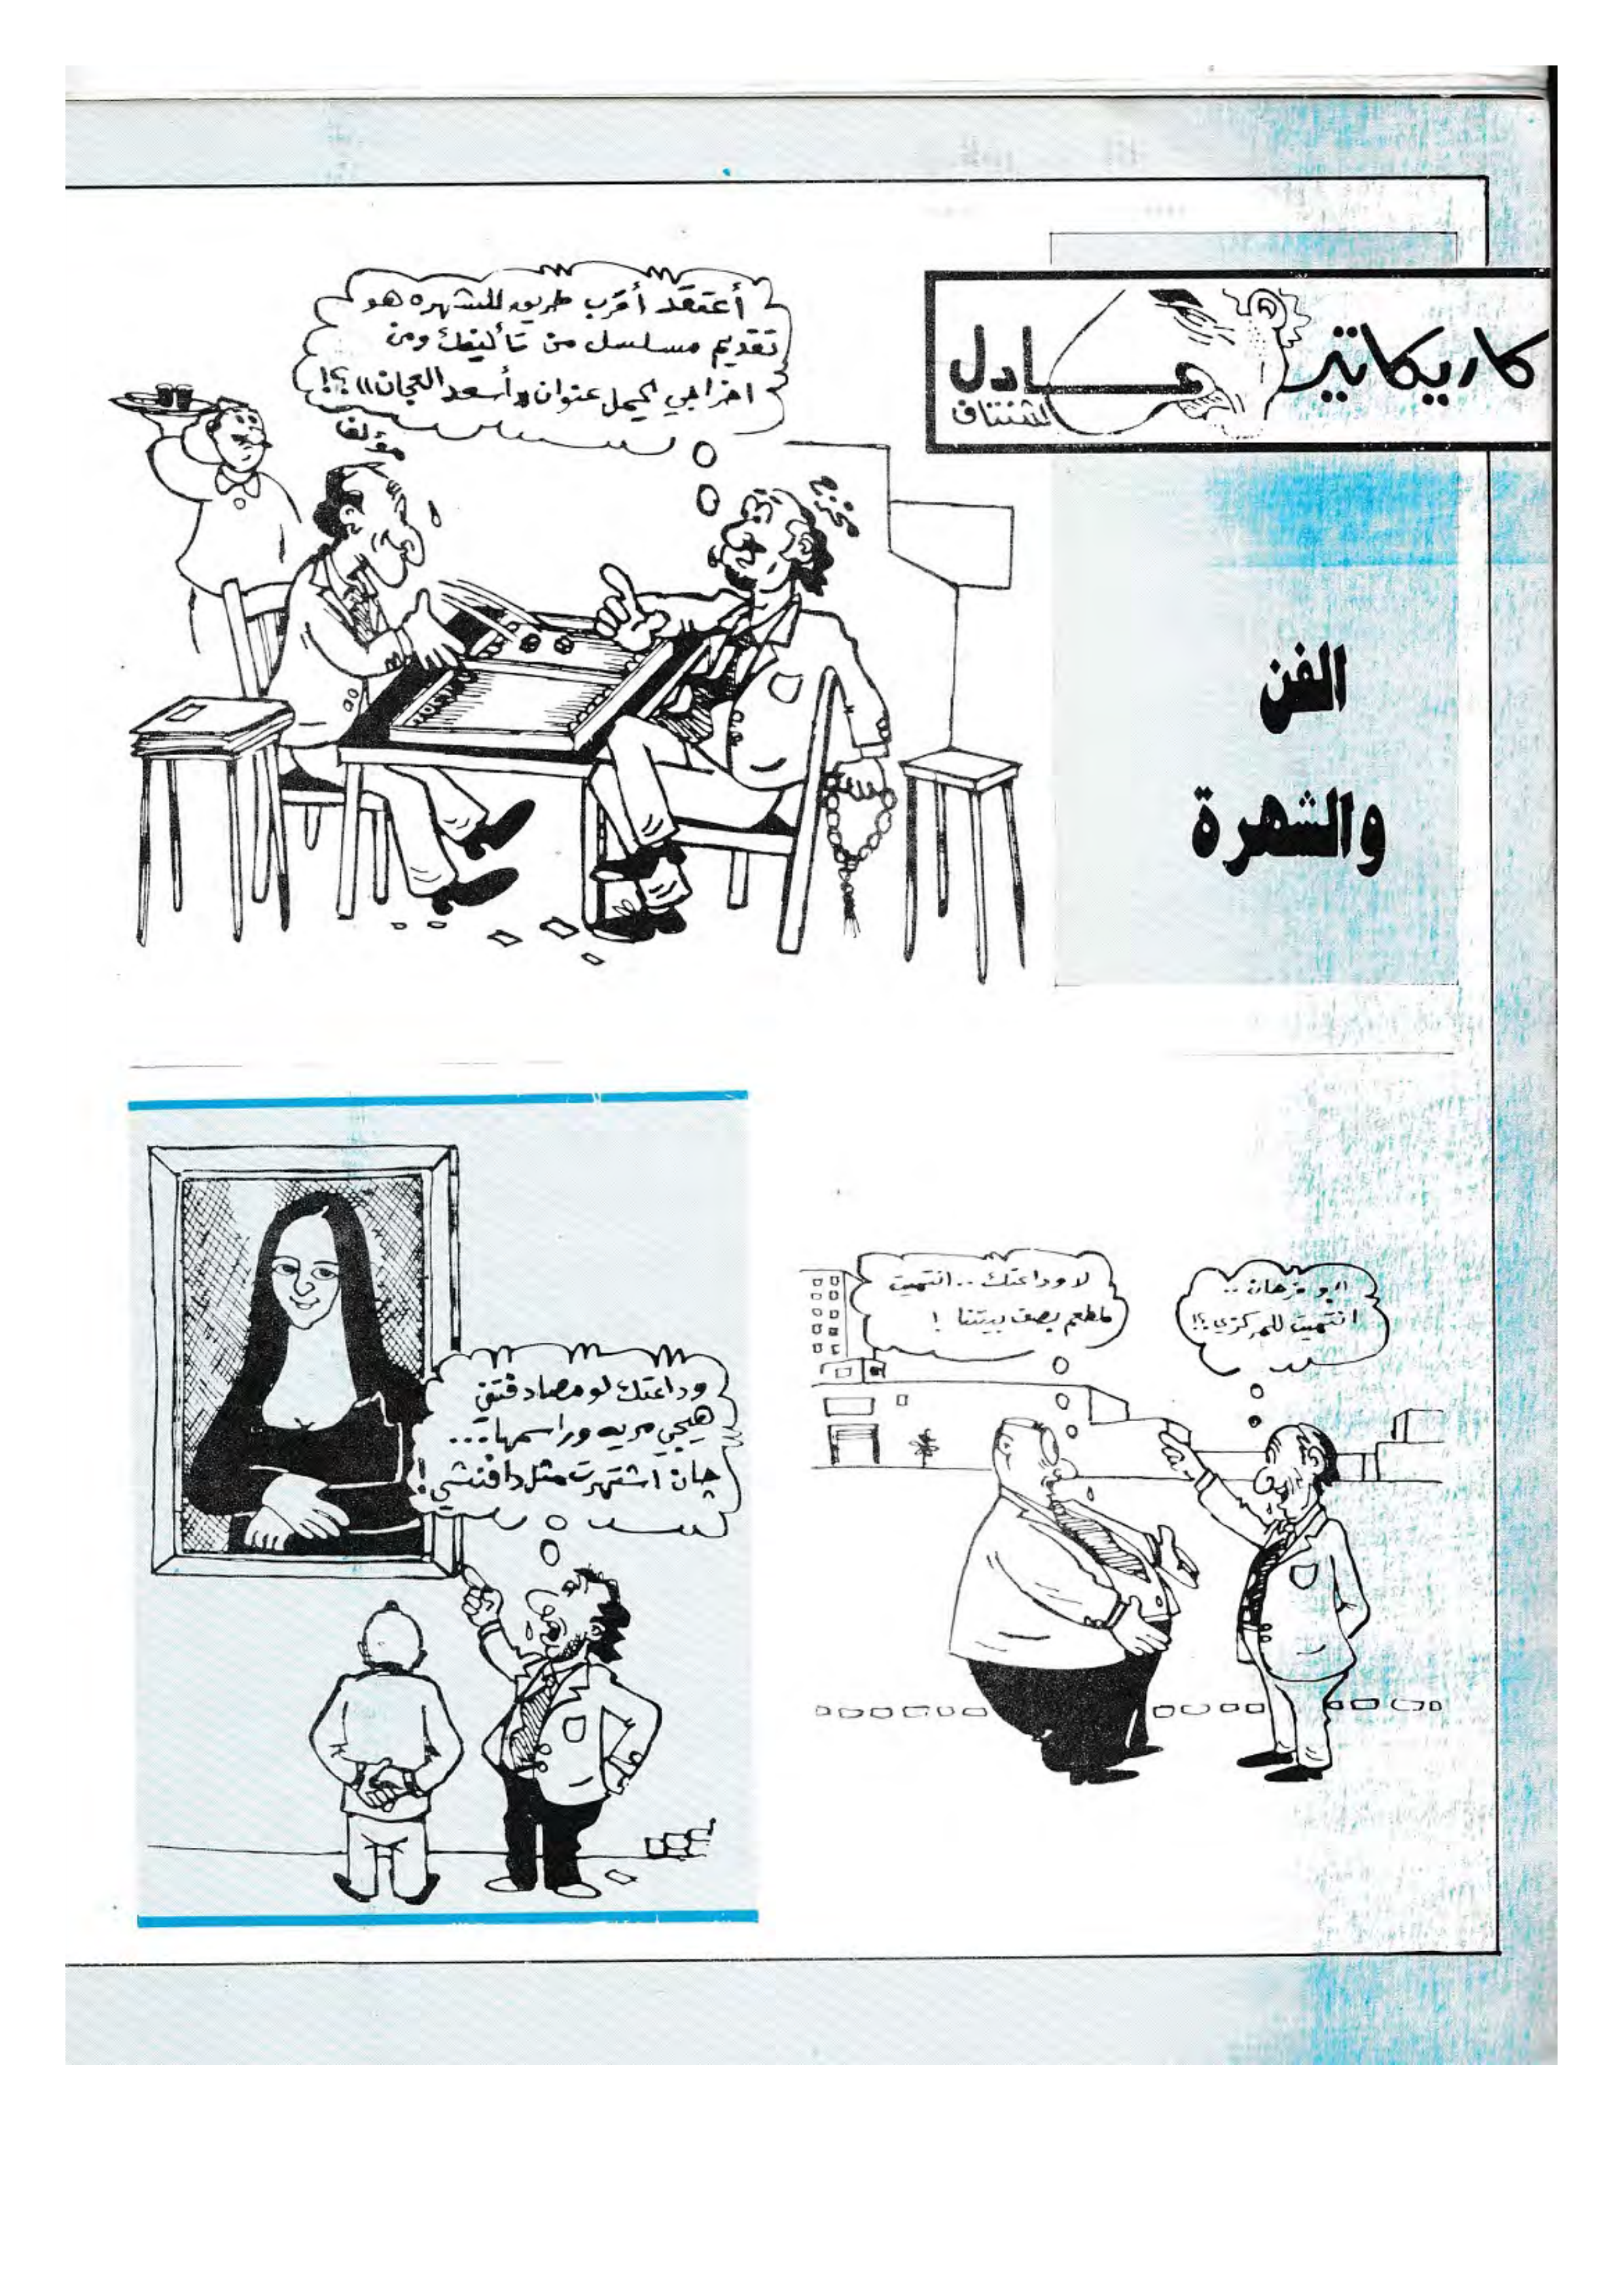 كاريكاتير
عادل
شنتاف
الفن
والشهرة
أعتقد أقرب طريق للشهره هو
تقديم مسلسل من تأليفك ومن
اخراجي يحمل عنوان «أسعد العجان»؟!
مؤلف
مخرج
ابو فرهان ..
انتميت للمركزي؟!
لا وداعتك .. انتميت
لمطعم بصف بيتنا !
وداعتك لو مصادفتني
هيجي مريه وراسمها ...
چان اشتهرت مثل دافنشي!